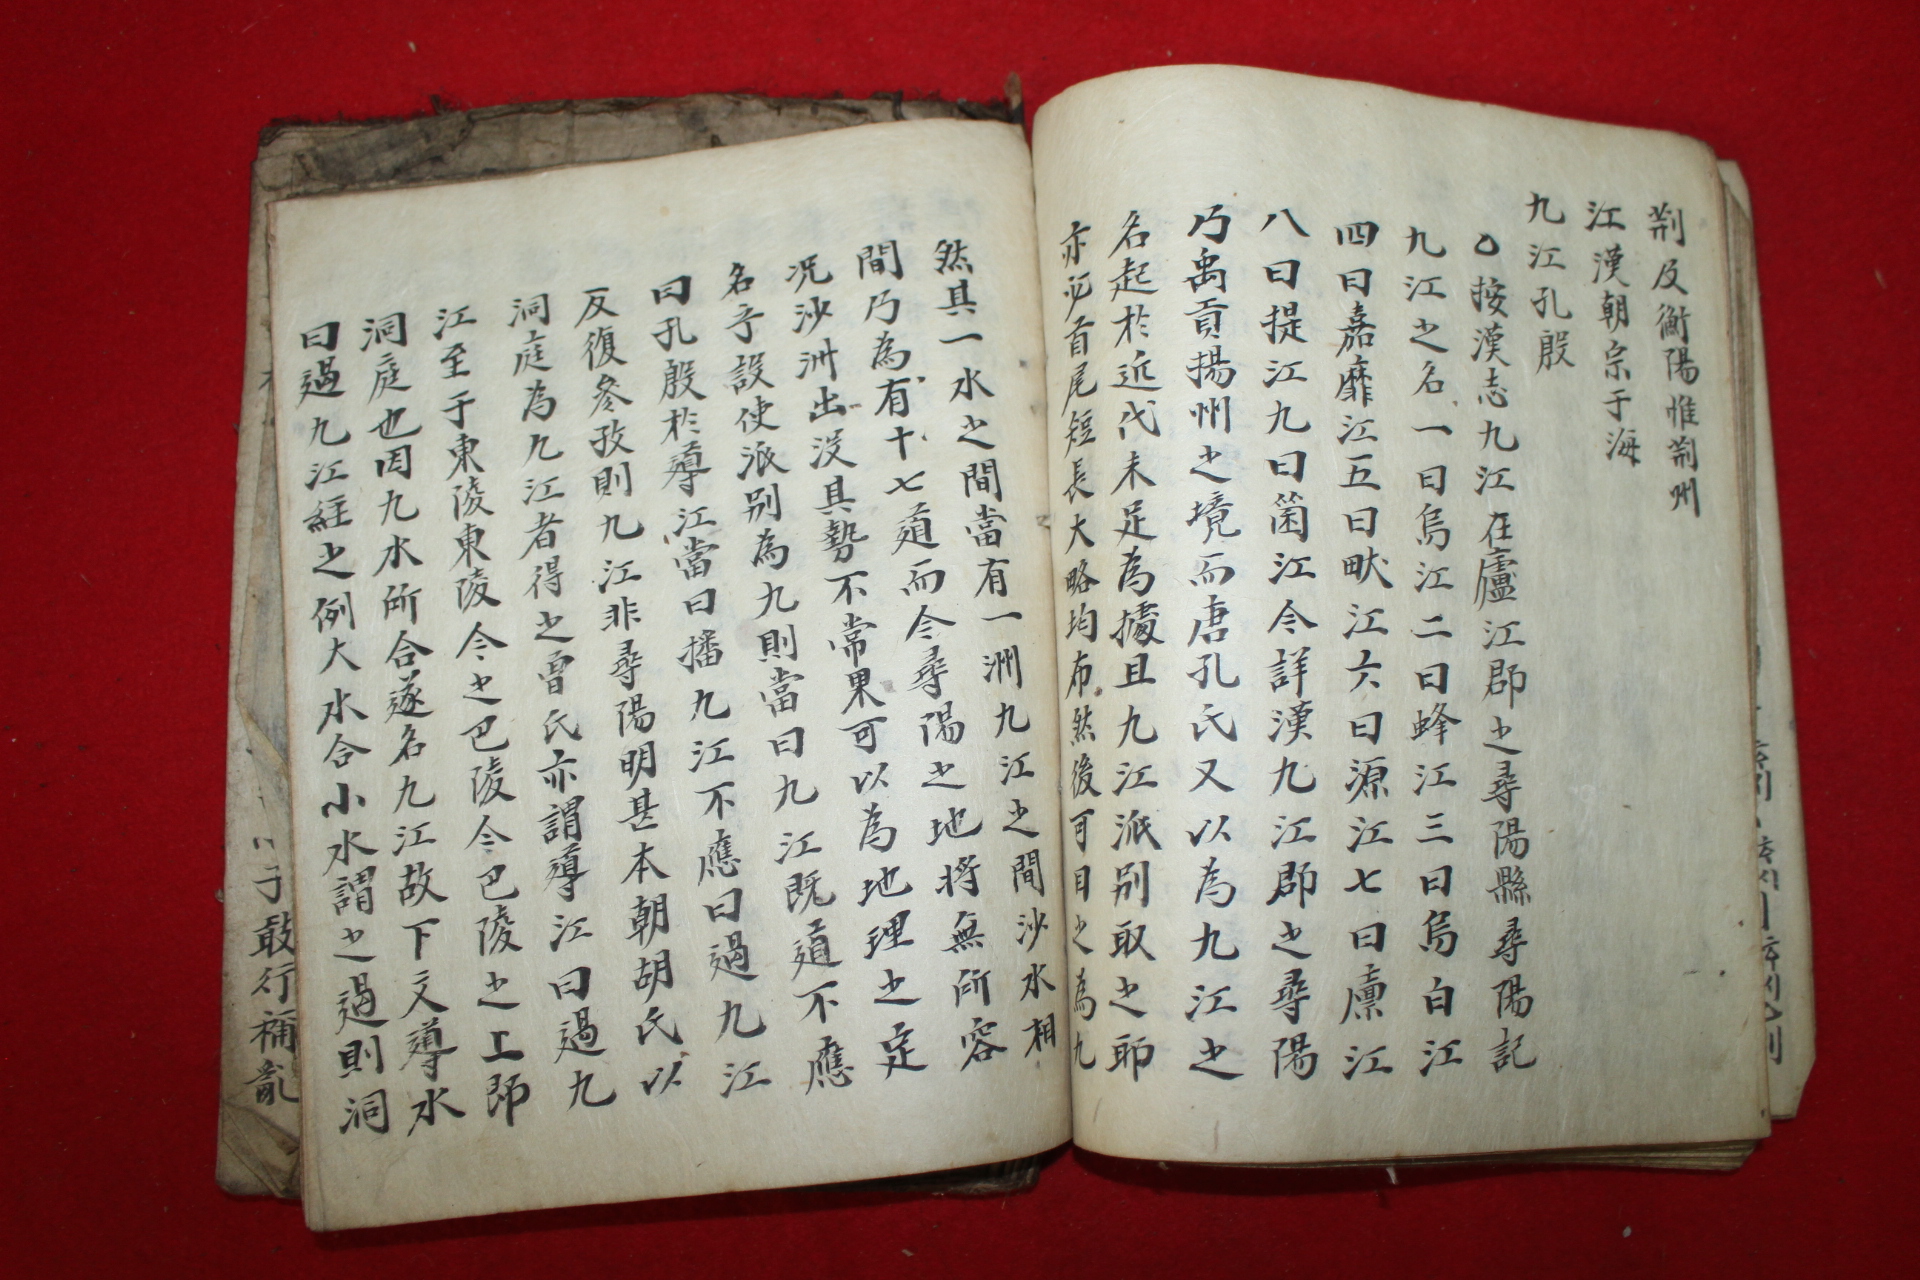 荆及衡陽惟荆州
江漢朝宗于海
九江孔殷
○按漢志九江在廬江郡之尋陽縣尋陽記
九江之名一曰烏江二曰蜂江三曰烏白江
四曰嘉靡江五曰畎江六曰源江七曰廪江
八曰提江九曰箘江今詳漢九江郡之尋陽
乃禹貢揚州之境而唐孔氏又以為九江之
名起於近代未足為據且九江派别取之耶
亦必首尾短長大略均布然後可目之為九
然其一水之間當有一洲九江之間沙水相
間乃為有十七道而今尋陽之地將無所容
况沙洲出没其勢不常果可以為地理之定
名乎設使派别為九則當曰九江既道不應
曰孔殷於導江當曰播九江不應曰過九江
反復參孜則九江非尋陽明甚本朝胡氏以
洞庭為九江者得之曾氏亦謂導江曰過九
江至于東陵東陵今之巴陵今巴陵之上即
洞庭也因九水所合遂名九江故下文導水
曰過九江經之例大水合小水謂之過則洞
子敢行補亂